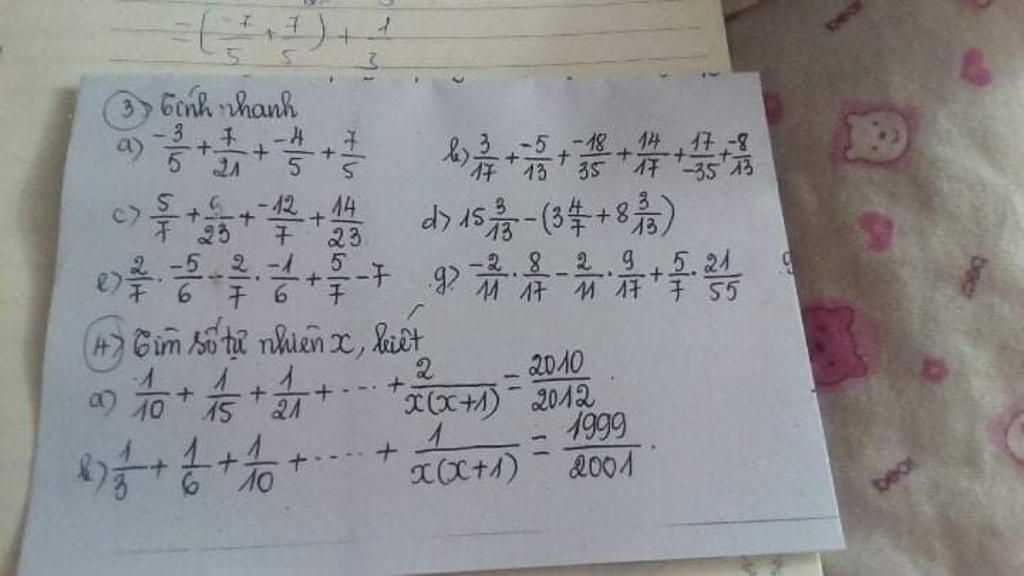 = (-7/5 + 7/5) + 1/3
3) Tính nhanh
a) -3/5 + 7/21 + -4/5 + 7/5 b) 3/17 + -5/13 + -18/35 + 14/17 + 17/-35 + -8/13
c) 5/7 + 9/23 + -12/7 + 14/23 d) 15 3/13 - (3 4/7 + 8 3/13)
e) 2/7 . -5/6 - 2/7 . -1/6 + 5/7 - 7 g) -2/11 . 8/17 - 2/11 . 9/17 + 5/7 . 21/55
4) Tìm số tự nhiên x, biết
a) 1/10 + 1/15 + 1/21 + .... + 2/x(x+1) = 2010/2012
b) 1/3 + 1/6 + 1/10 + ..... + 1/x(x+1) = 1999/2001.